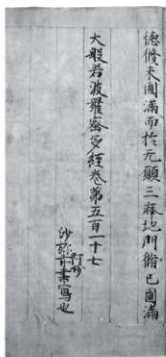 德脩未圓滿而於无願三摩地門脩已圓滿
大般若波羅蜜多經卷第五百一十七
沙弥寫也